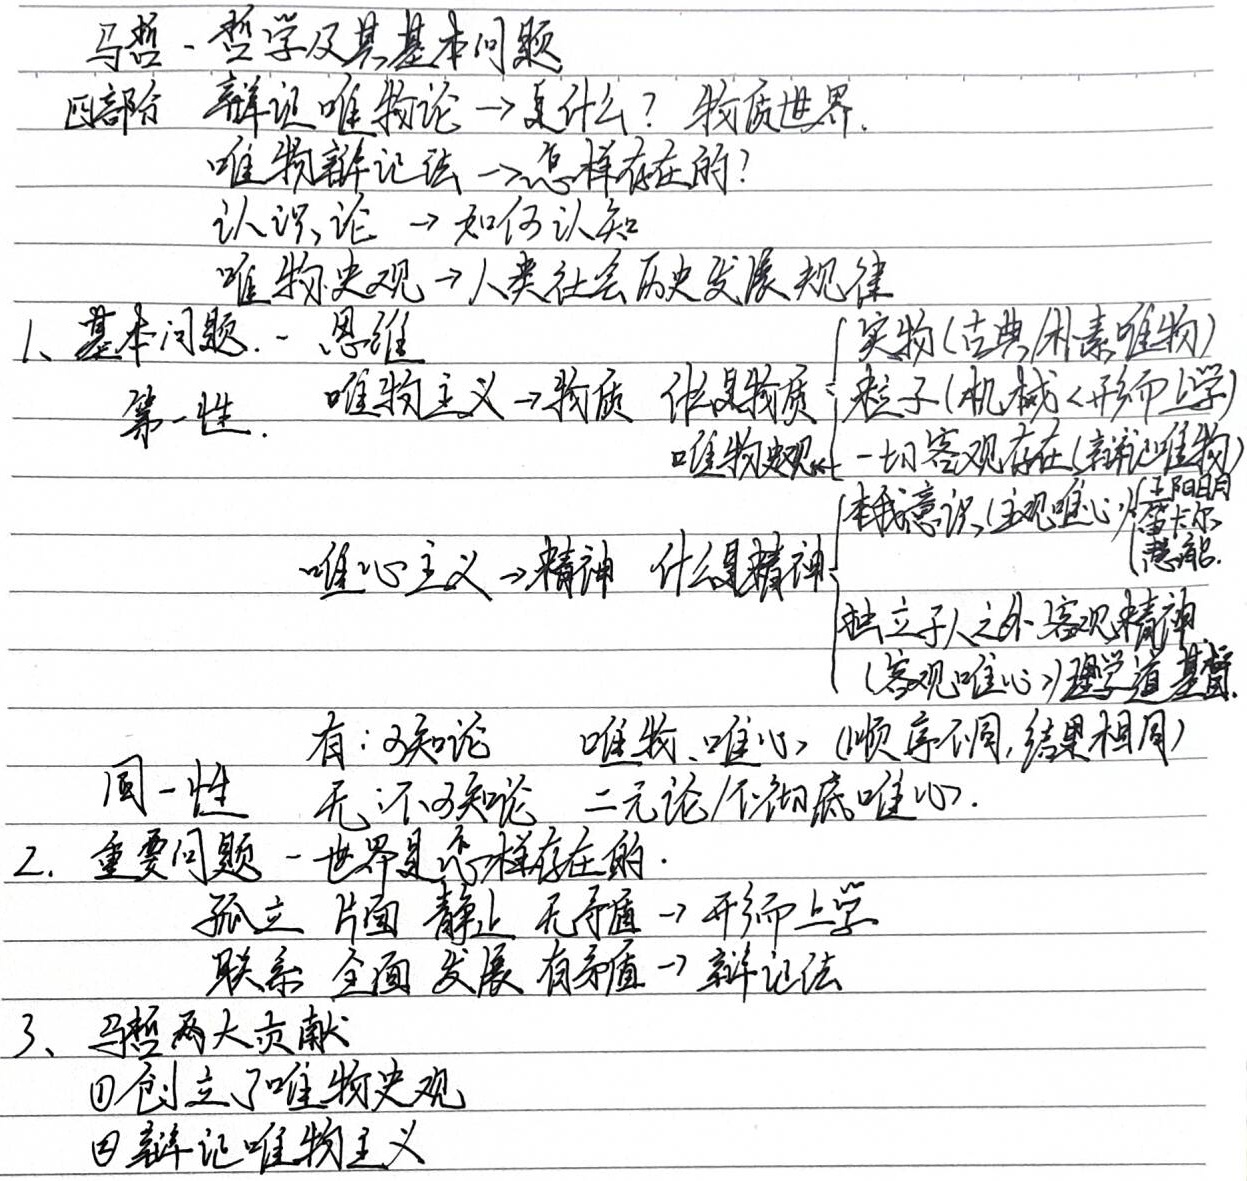 马哲-哲学及其基本问题
四部分 辩证唯物论→是什么？物质世界.
唯物辩记法→怎样存在的？
认识论→如何认知
唯物史观→人类社会历史发展规律
1、基本问题.-思维
实物(古典/朴素唯物)
第一性. 唯物主义→物质 什么是物质 粒子(机械<形而上学)
唯物史观 一切客观存在(辩记唯物)
本我意识(主观唯心) 王阳明
笛卡尔
慧能.
唯心主义→精神 什么是精神
独立于人之外客观精神
(客观唯心)理学道基督.
同一性 有:可知论 唯物、唯心(顺序不同,结果相同)
无:不可知论 二元论/不彻底唯心.
2. 重要问题-世界是怎样存在的.
孤立 片面 静止 无矛盾→形而上学
联系 全面 发展 有矛盾→辩记法
3、马哲两大贡献
①创立了唯物史观
②辩记唯物主义